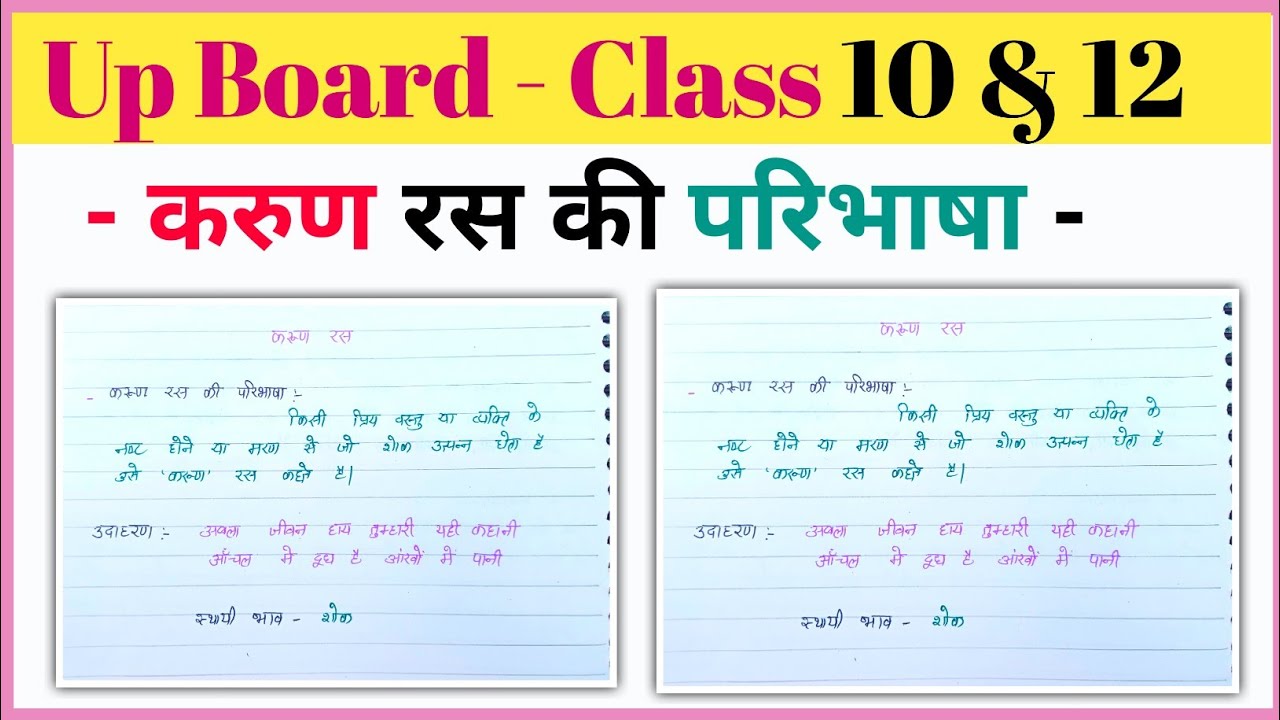 Up Board - Class 10 & 12
- करुण रस की परिभाषा -
करूण रस
- करूण रस की परिभाषा :-
किसी प्रिय वस्तु या व्यक्ति के
नष्ट होने या मरण से जो शोक उत्पन्न होता है
उसे 'करूण' रस कहते है।
उदाहरण :- अबला जीवन हाय तुम्हारी यही कहानी
आँचल मे दूध है आंखों में पानी
स्थायी भाव - शोक
करूण रस
- करूण रस की परिभाषा :-
किसी प्रिय वस्तु या व्यक्ति के
नष्ट होने या मरण से जो शोक उत्पन्न होता है
उसे 'करूण' रस कहते है।
उदाहरण :- अबला जीवन हाय तुम्हारी यही कहानी
आँचल मे दूध है आंखों में पानी
स्थायी भाव - शोक